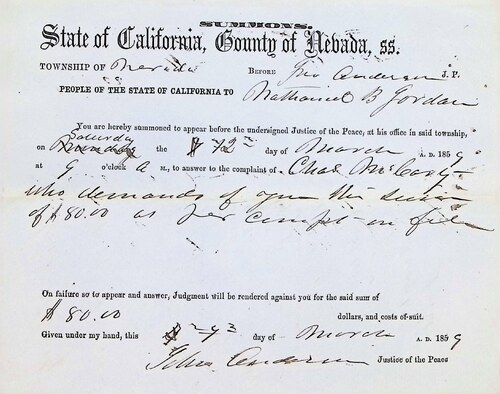 SUMMONS.
State of California, County of Nevada, ss.
TOWNSHIP OF Nevada BEFORE Jno Anderson J. P.
PEOPLE OF THE STATE OF CALIFORNIA TO Nathaniel B Jordan
You are hereby summoned to appear before the undersigned Justice of the Peace, at his office in said township,
Saturday
on the 12 day of March A. D. 1859
at 9 o'clock A M., to answer to the complaint of Chas McCarty
who demands of you the sum
of $80.00 as per compt on file
On failure so to appear and answer, Judgment will be rendered against you for the said sum of
$80.00 dollars, and costs of suit.
Given under my hand, this day of March A. D. 1859
John Anderson Justice of the Peace